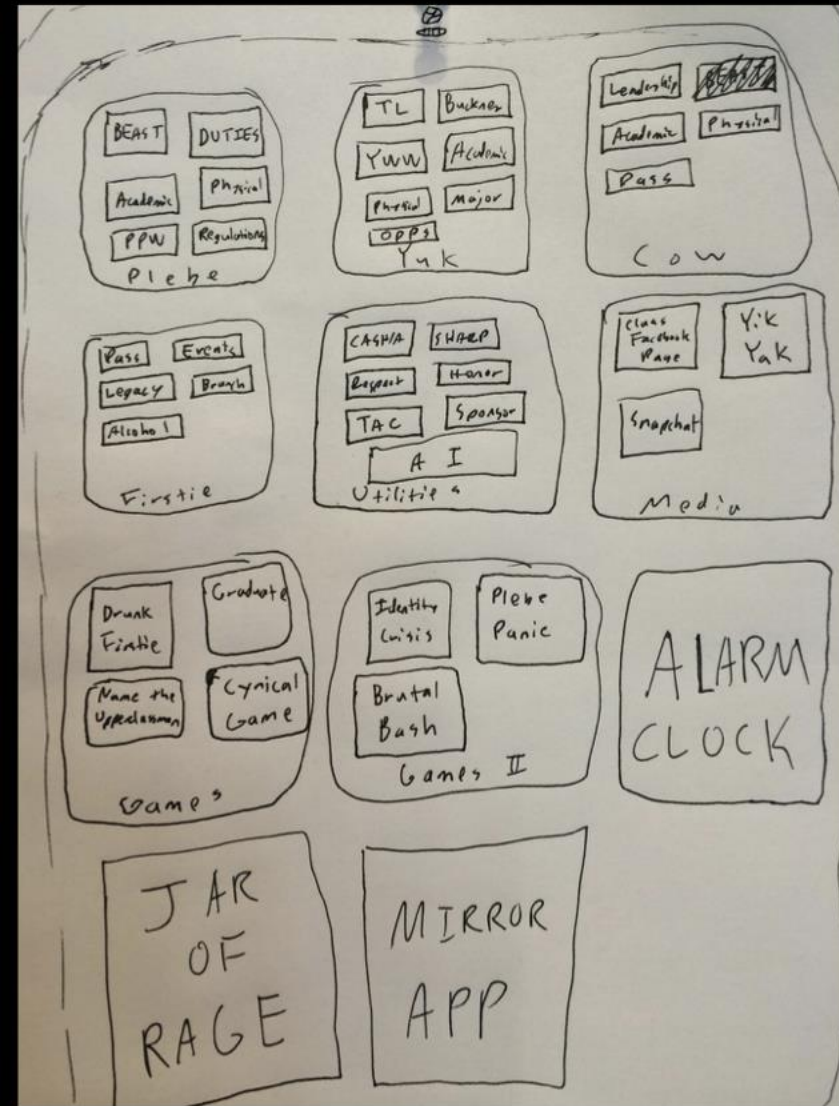 BEAST DUTIES
Academic Physical
PPW Regulations
Plebe
TL Buckner
YWW Academic
Physical Major
OPPS
Yuk
Leadership
Academic Physical
Pass
Cow
Pass Events
Legacy Branch
Alcohol
Firstie
CASHA SHARP
Respect Honor
TAC Sponsor
AI
Utilities
Class
Facebook
Page
Yik
Yak
Snapchat
Media
Drunk
Firstie
Graduate
Name the
Upperclassman
Cynical
Game
Games
Identity
Crisis
Plebe
Panic
Brutal
Bash
Games II
ALARM
CLOCK
JAR
OF
RAGE
MIRROR
APP